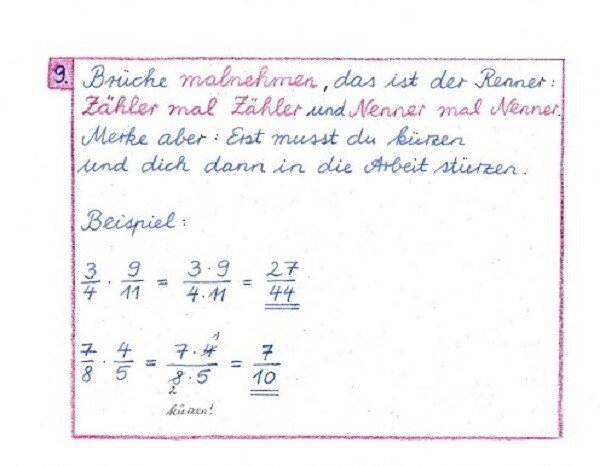 9. Brüche malnehmen, das ist der Renner:
Zähler mal Zähler und Nenner mal Nenner.
Merke aber: Erst musst du kürzen
und dich dann in die Arbeit stürzen.
Beispiel:
3/4 · 9/11 = 3·9/4·11 = 27/44
7/8 · 4/5 = 7·4/8·5 = 7/10
1
2
kürzen!